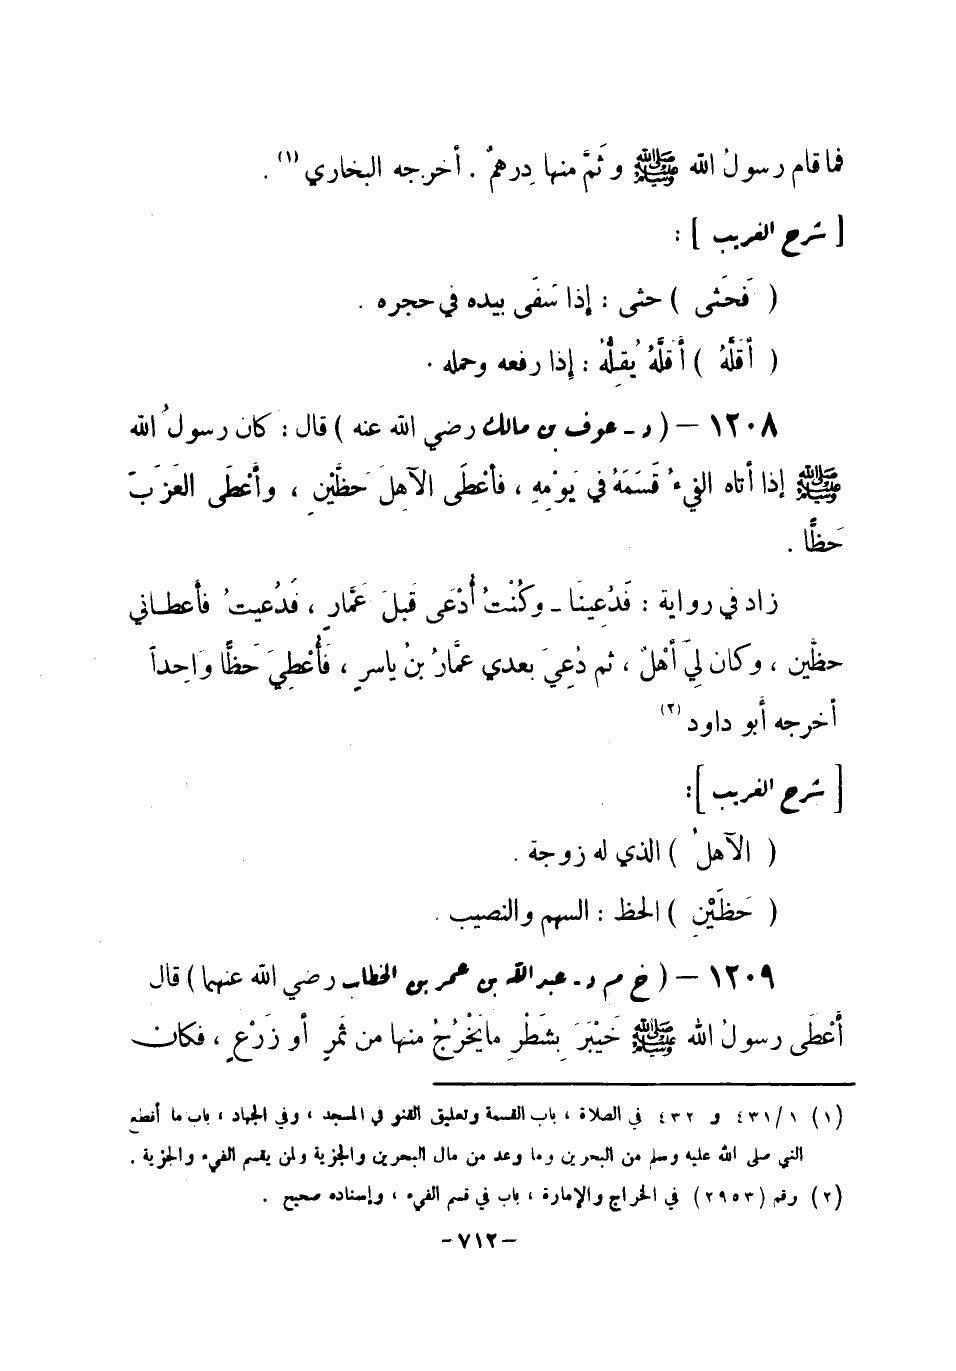 فما قام رسولُ الله ﷺ وثَمَّ منها دِرهمٌ . أخرجه البخاري (١) .
[ شرح الغريب ] :
( فَحَثى ) حثى : إذا سَفَى بيده في حجره .
( أَقَلَّهُ ) أَقَلَّهُ يُقِلُّهُ : إذا رفعه وحمله .
١٢٠٨ – ( د - عوف بن مالك رضي الله عنه ) قال : كان رسولُ الله
ﷺ إذا أتاه الفيءُ قَسَمَهُ في يَوْمِهِ ، فأعْطَى الآهِلَ حَظَّيْنِ ، وأَعْطَى العَزَبَ
حَظًّا .
زاد في رواية : فَدُعِينَا - وكُنْتُ أُدْعَى قَبلَ عَمَّارٍ ، فَدُعيتُ فأعطاني
حظَّين ، وكان لِيَ أهْلٌ ، ثم دُعِيَ بعدي عمَّارُ بنُ ياسرٍ ، فَأُعْطِيَ حَظًّا وَاحِداً
أخرجه أبو داود (٢)
[ شرح الغريب ] :
( الآهلُ ) الذي له زوجة .
( حَظَّيْنِ ) الحظ : السهم والنصيب .
١٢٠٩ – ( خ م د - عبد الله بن عمر بن الخطاب رضي الله عنهما ) قال
أَعْطَى رسولُ الله ﷺ خَيْبَرَ بِشَطْرِ مايَخْرُجُ منها من ثَمرٍ أو زَرْعٍ ، فكان
(١) ١ / ٤٣١ و ٤٣٢ في الصلاة ، باب القسمة وتعليق القنو في المسجد ، وفي الجهاد ، باب ما أقطع
النبي صلى الله عليه وسلم من البحرين وما وعد من مال البحرين والجزية ولمن يقسم الفيء والجزية .
(٢) رقم (٢٩٥٣) في الخراج والإمارة ، باب في قسم الفيء ، وإسناده صحيح .
- ٧١٢ -